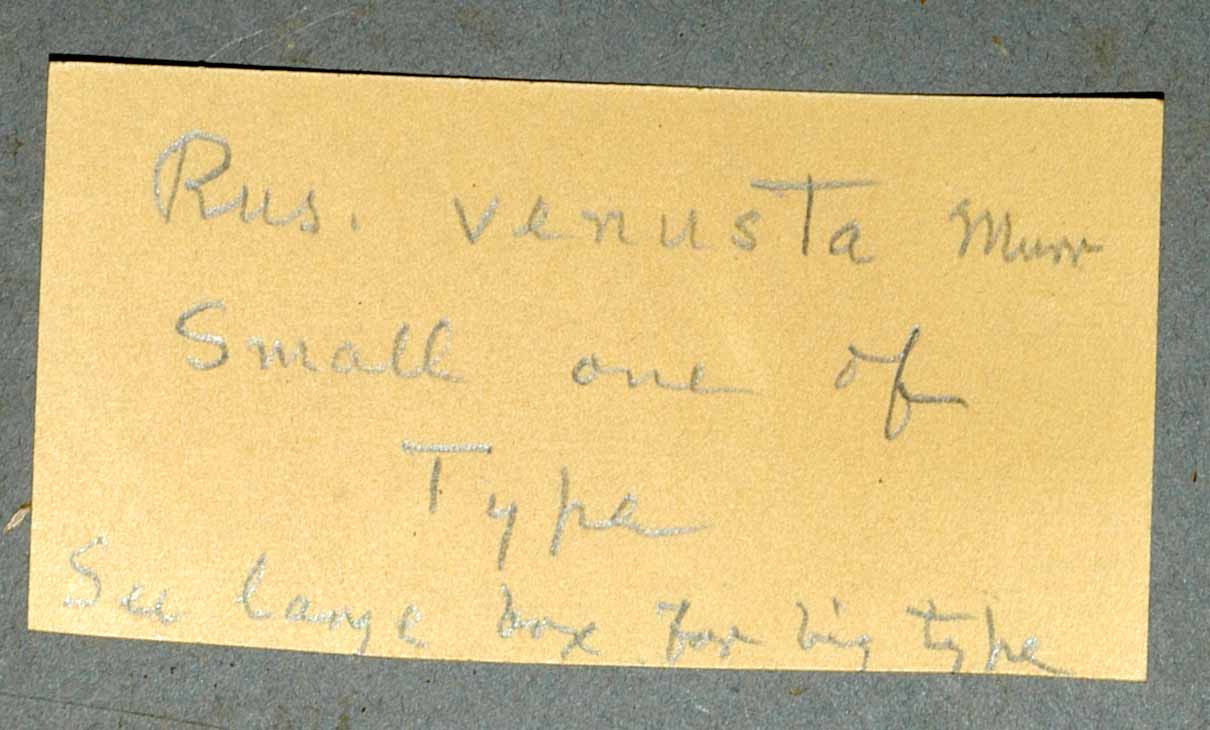 Rus. venusta Murr
Small one of
Type
See large box for big type